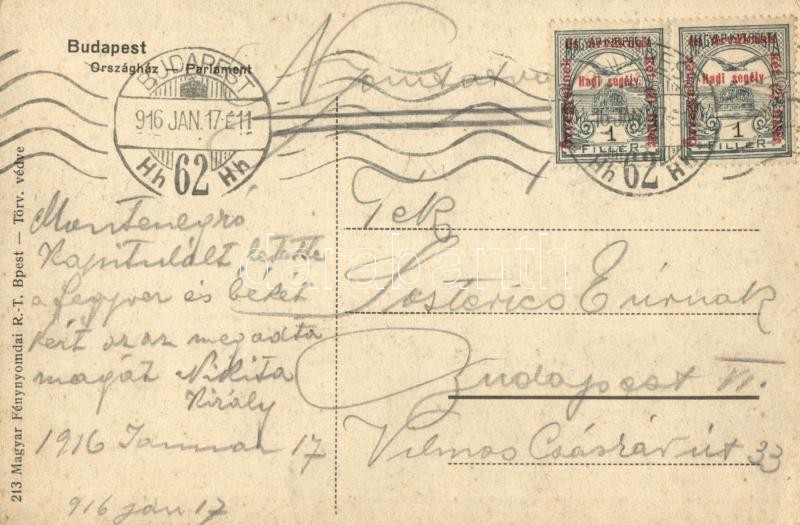 Budapest
Országház — Parlament
BUDAPEST
916 JAN. 17 E 11
Hh 62 Hh
Nyomtatvány
Hadi segély
Özvegyeknek és árváknak két (2) fillér
1
FILLÉR
Hadi segély
Özvegyeknek és árváknak két (2) fillér
1
FILLÉR
Hh 62 Hh
213 Magyar Fénynyomdai R.-T. Bpest — Törv. védve
Montenegró
Kapitulált letette
a fegyver és békét
kért azaz megadta
magát Nikita
Király
1916 Januar 17
916 jan 17
Tek
Sosterics E úrnak
Budapest VI.
Vilmos Császár út 33
darabanth